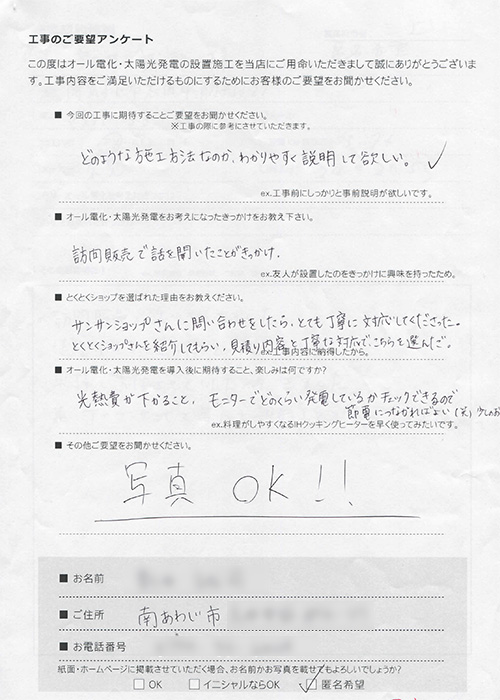 工事のご要望アンケート
この度はオール電化・太陽光発電の設置施工を当店にご用命いただきまして誠にありがとうございま
す。工事内容をご満足いただけるものにするためにお客様のご要望をお聞かせください。
■ 今回の工事に期待することご要望をお聞かせください。
※工事の際に参考にさせていただきます。
どのような施工方法なのか、わかりやすく説明して欲しい。
ex.工事前にしっかりと事前説明が欲しいです。
■ オール電化・太陽光発電をお考えになったきっかけをお教え下さい。
訪問販売で話を聞いたことがきっかけ.
ex.友人が設置したのをきっかけに興味を持ったため。
■ とくとくショップを選ばれた理由をお教えください。
サンサンショップさんに問い合わせをしたら、とても丁寧に対応してくださった。
とくとくショップさんを紹介してもらい、見積り内容と丁寧な対応でこちらを選んだ。
ex.工事内容に納得したから。
■ オール電化・太陽光発電を導入後に期待すること、楽しみは何ですか?
光熱費が下がること、モニターでどのくらい発電しているかチェックできるので
節電につながればよい(笑)
ex.料理がしやすくなるIHクッキングヒーターを早く使ってみたいです。
■ その他ご要望をお聞かせください。
写真 OK!!
■ お名前
■ ご住所 南あわじ市
■ お電話番号
紙面・ホームページに掲載させていただく場合、お名前かお写真を載せてもよろしいでしょうか?
□ OK □ イニシャルならOK ☑ 匿名希望